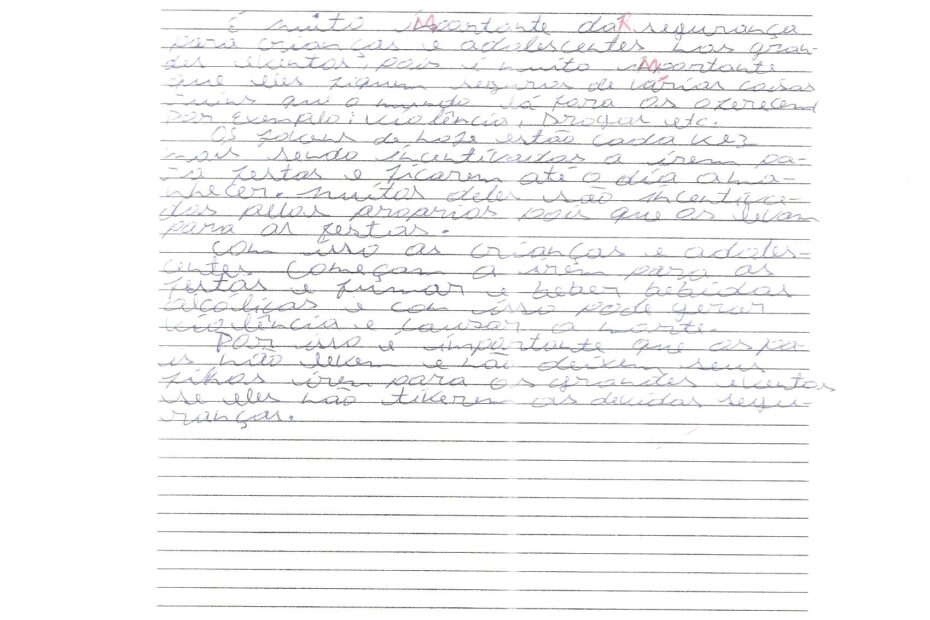 É muito iMportante daR segurança
para crianças e adolescentes nos gran-
des eventos, pois é muito iMportante
que eles fiquem seguros de várias coisas
ruins que o mundo la fora os oxerecem
por exemplo: violência, drogas etc.
Os jovens de hoje estão cada vez
mais sendo incentivados a irem pa-
ra festas e ficarem até o dia ama-
nhecer. Muitos deles são incentiva-
dos pellos proprios pais que os levam
para as festas.
Com isso as crianças e adoles-
centes começam a irem para as
festas e fumar e beber bebidas
alcoólicas e com isso pode gerar
violência e causar a morte.
Por isso é importante que os pa-
is não levem e não deixem seus
filhos irem para os grandes eventos
se eles não tiverem as devidas segu-
ranças.